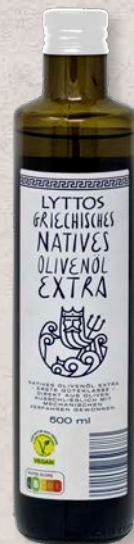 LYTTOS
GRIECHISCHES
NATIVES
OLIVENÖL
EXTRA
NATIVES OLIVENÖL EXTRA
- ERSTE GÜTEKLASSE -
DIREKT AUS OLIVEN
AUSSCHLIESSLICH MIT
MECHANISCHEN
VERFAHREN GEWONNEN.
500 ml
VEGAN
NUTRI-SCORE